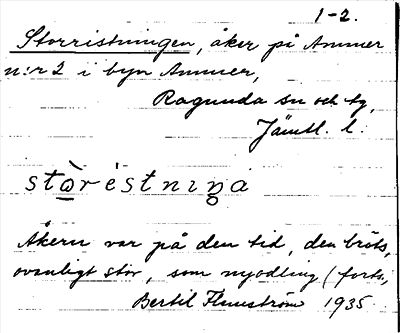 1-2.
Storristningen, åker på Ammer
n:r 2 i byn Ammer,
Ragunda sn och tg,
Jämtl. l.
stὼréstniŋa
Åkern var på den tid, den bröts,
ovanligt stor, som nyodling (forts,
Bertil Flemström 1935